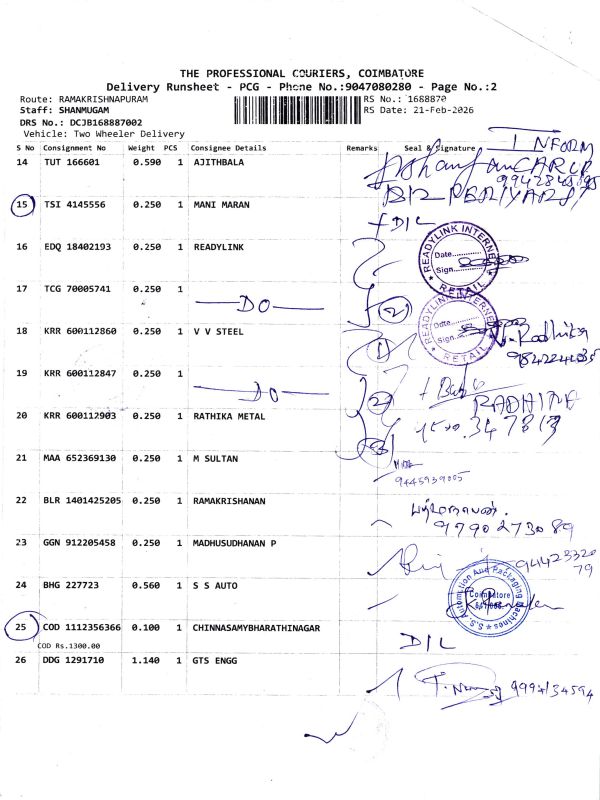 THE PROFESSIONAL COURIERS, COIMBATORE
Delivery Runsheet - PCG - Phone No.:9047080280 - Page No.:2
Route: RAMAKRISHNAPURAM
Staff: SHANMUGAM
DRS No.: DCJB168887002
RS No.: 1688870
RS Date: 21-Feb-2026
Vehicle: Two Wheeler Delivery
S No Consignment No Weight PCS Consignee Details Remarks Seal & Signature
INFORM
14 TUT 166601 0.590 1 AJITHBALA
15 TSI 4145556 0.250 1 MANI MARAN D/L
16 EDQ 18402193 0.250 1 READYLINK
READYLINK INTERNET
Date
Sign
RETAIL
17 TCG 70005741 0.250 1 DO 2
READYLINK INTERNET
Date
Sign
RETAIL
18 KRR 600112860 0.250 1 V V STEEL 1
Radhika
19 KRR 600112847 0.250 1 DO 2
20 KRR 600112903 0.250 1 RATHIKA METAL
21 MAA 652369130 0.250 1 M SULTAN
9445939005
22 BLR 1401425205 0.250 1 RAMAKRISHANAN
9790273089
23 GGN 912205458 0.250 1 MADHUSUDHANAN P
9442332079
24 BHG 227723 0.560 1 S S AUTO
S.S. Automation And Packaging Machines
Coimbatore
25 COD 1112356366 0.100 1 CHINNASAMYBHARATHINAGAR D/L
COD Rs.1300.00
26 DDG 1291710 1.140 1 GTS ENGG
9994134594